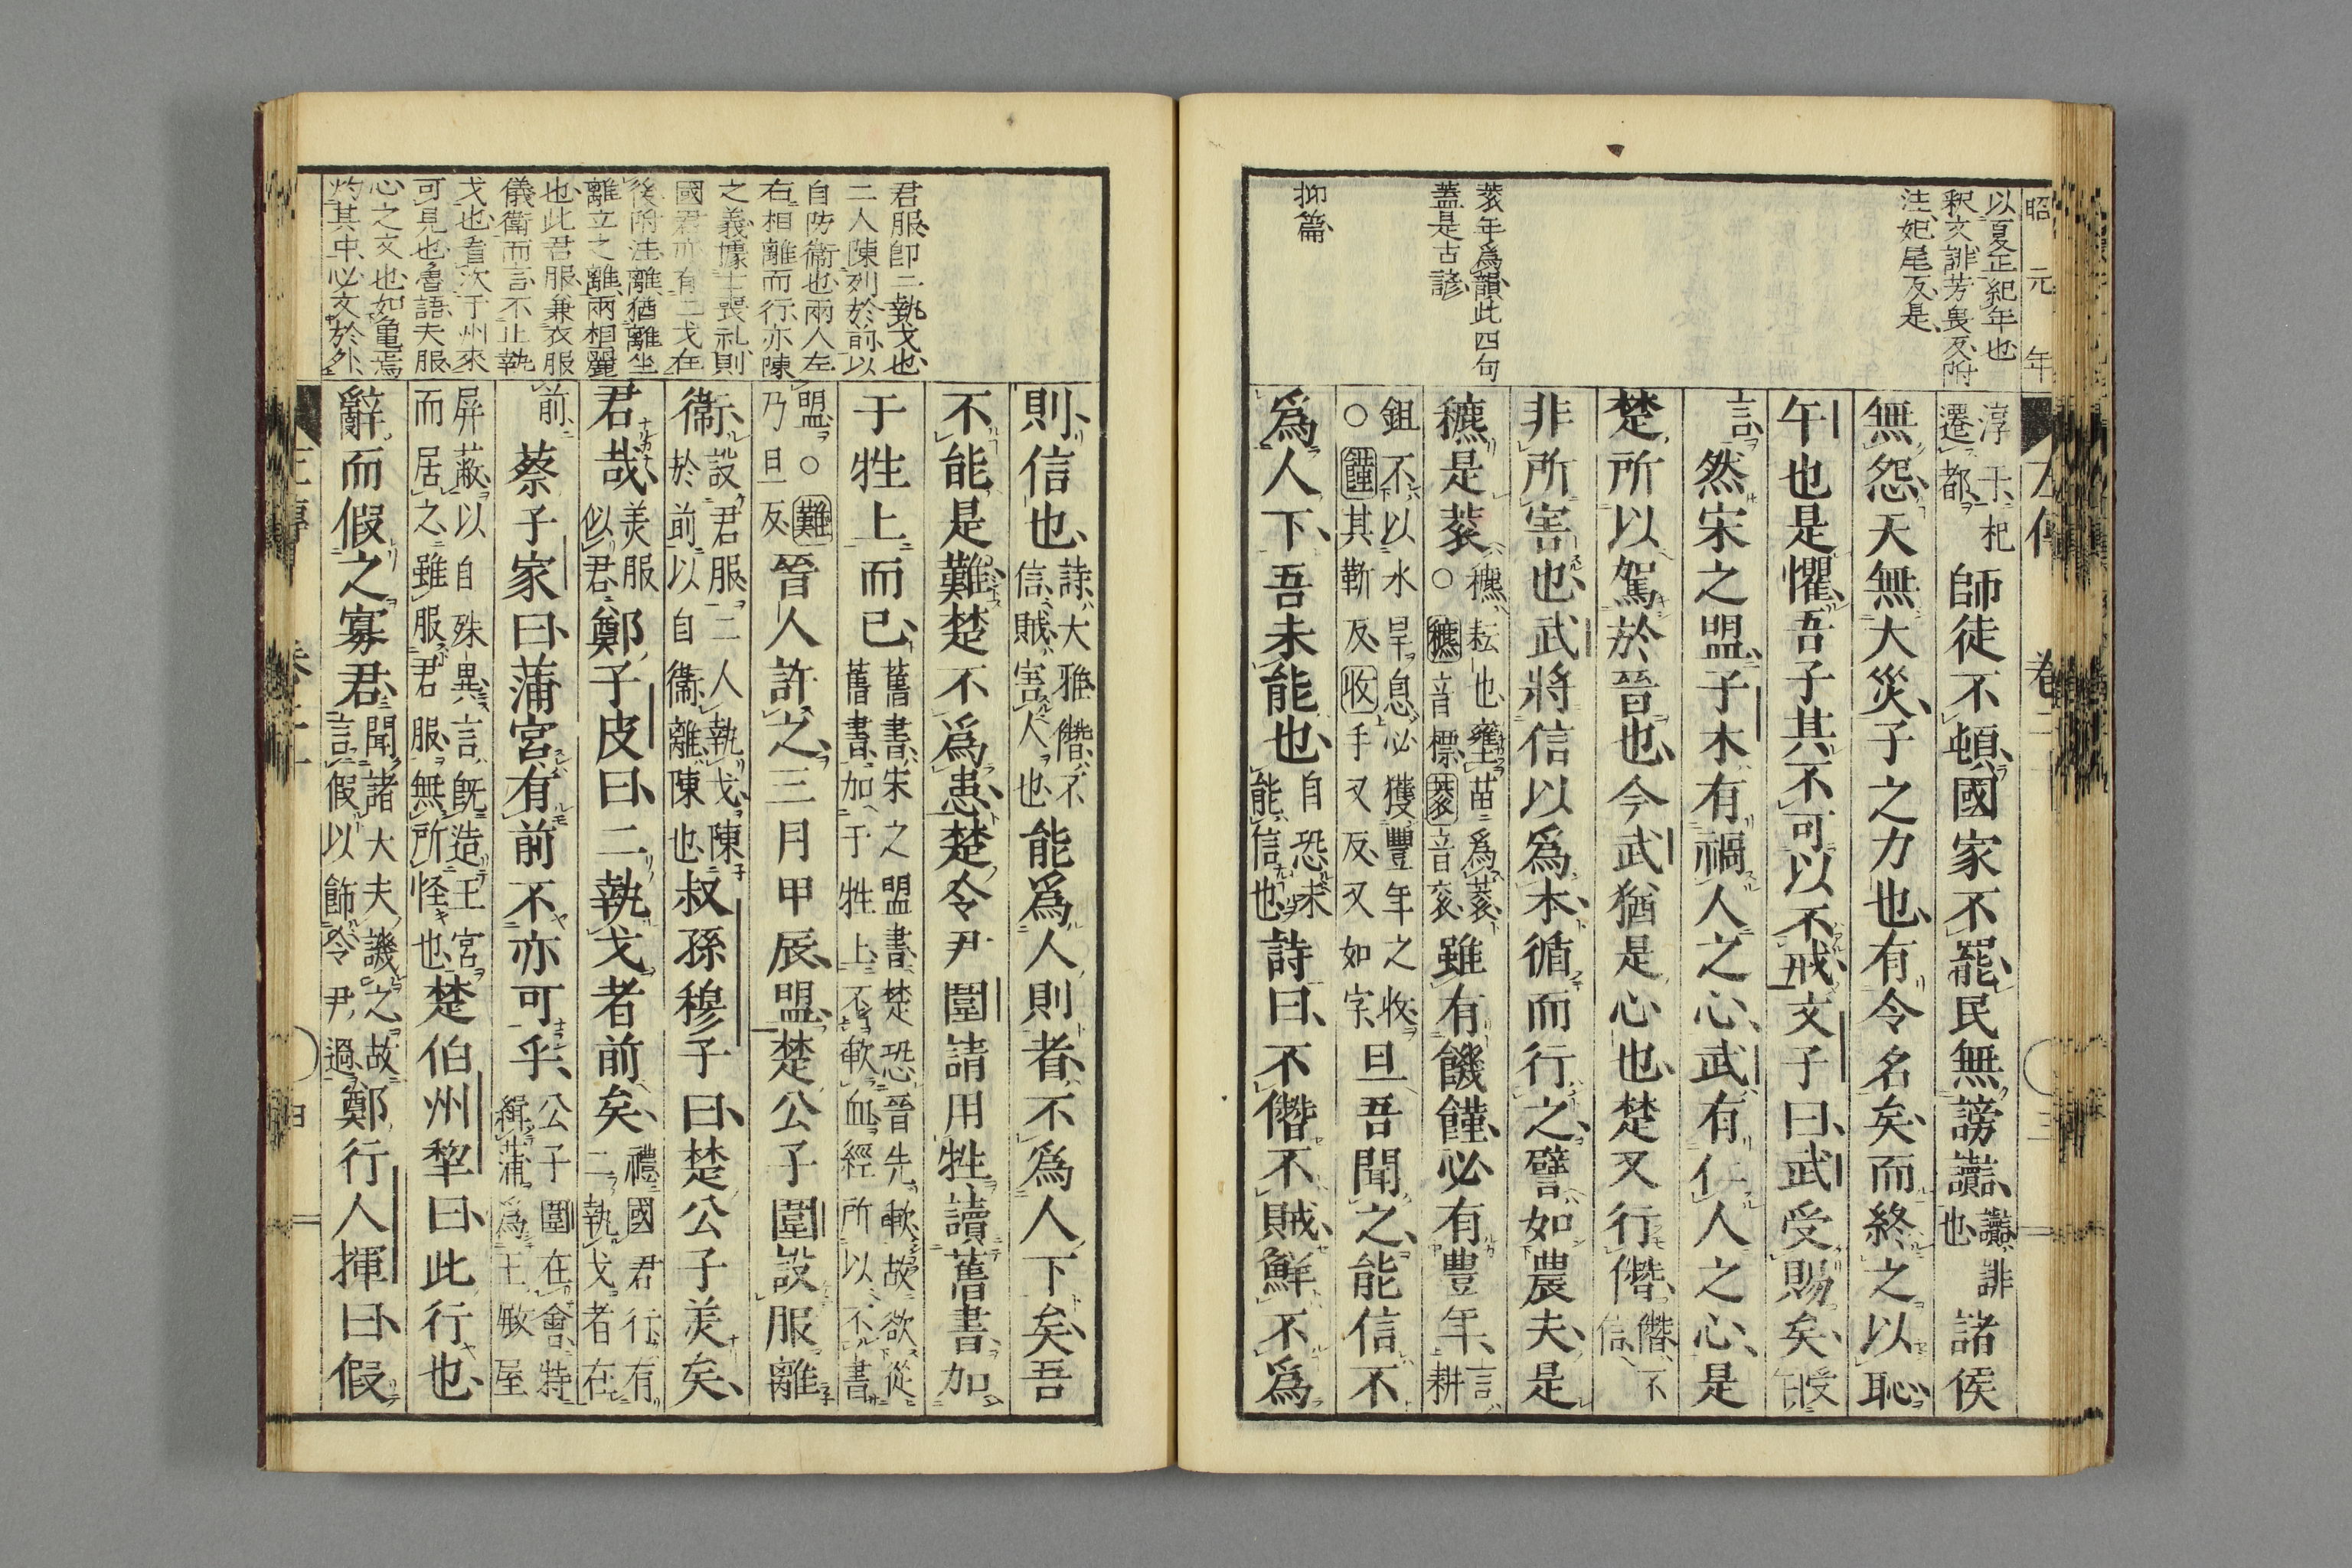 昭元年
以夏正紀年也
釈文誹芳畏反附
注妃尾反是
蓘年為韻此四句
蓋是古諺
抑篇
左傳 卷二十 三
淳于杞
遷都
師徒不頓國家不罷民無謗讟讟誹也諸侯
無怨天無大災子之力也有令名矣而終之以恥
午也是懼吾子其不可以不戒文子曰武受賜矣受午
言然宋之盟子木有禍人之心武有仁人之心是
楚所以駕於晉也今武猶是心也楚又行僭僭不信
非所害也武將信以爲本循而行之譬如農夫是
穮是蓘穮耘也壅苗爲蓘○穮音標蓘音衮雖有饑饉必有豐年言耕
鉏不以水旱息必獲豐年之收
○饉其靳反收手又反又如字
且吾聞之能信不
爲人下吾未能也自恐未能信也詩曰不僭不賊鮮不爲
君服即二執戈也
二人陳列於前以
自防衞也兩人左
右相離而行亦陳
之義據士喪礼則
國君亦有二戈在
後附注離猶離坐
離立之離兩相麗
也此君服兼衣服
儀衛而言不止執
戈也看次于州來
可見也魯語夫服
心之文也如龜焉
灼其中必文於外
則信也詩大雅僭不信賊害人也能爲人則者不爲人下矣吾
不能是難楚不爲患楚令尹圍請用牲讀舊書加
于牲上而已舊書宋之盟書楚恐晉先歃故欲從舊書加于牲上不歃血經所以不書
盟○難乃旦反晉人許之三月甲辰盟楚公子圍設服離
衞設君服二人執戈陳於前以自衞離陳也叔孫穆子曰楚公子美矣
君哉美服似君鄭子皮曰二執戈者前矣禮國君行有二執戈者在
前蔡子家曰蒲宮有前不亦可乎公子圍在會特緝蒲爲王殿屋
屏蔽以自殊異言旣造王宮
而居之雖服君服無所怪也
楚伯州犂曰此行也
辭而假之寡君聞諸大夫譏之故言假以飾令尹過鄭行人揮曰假